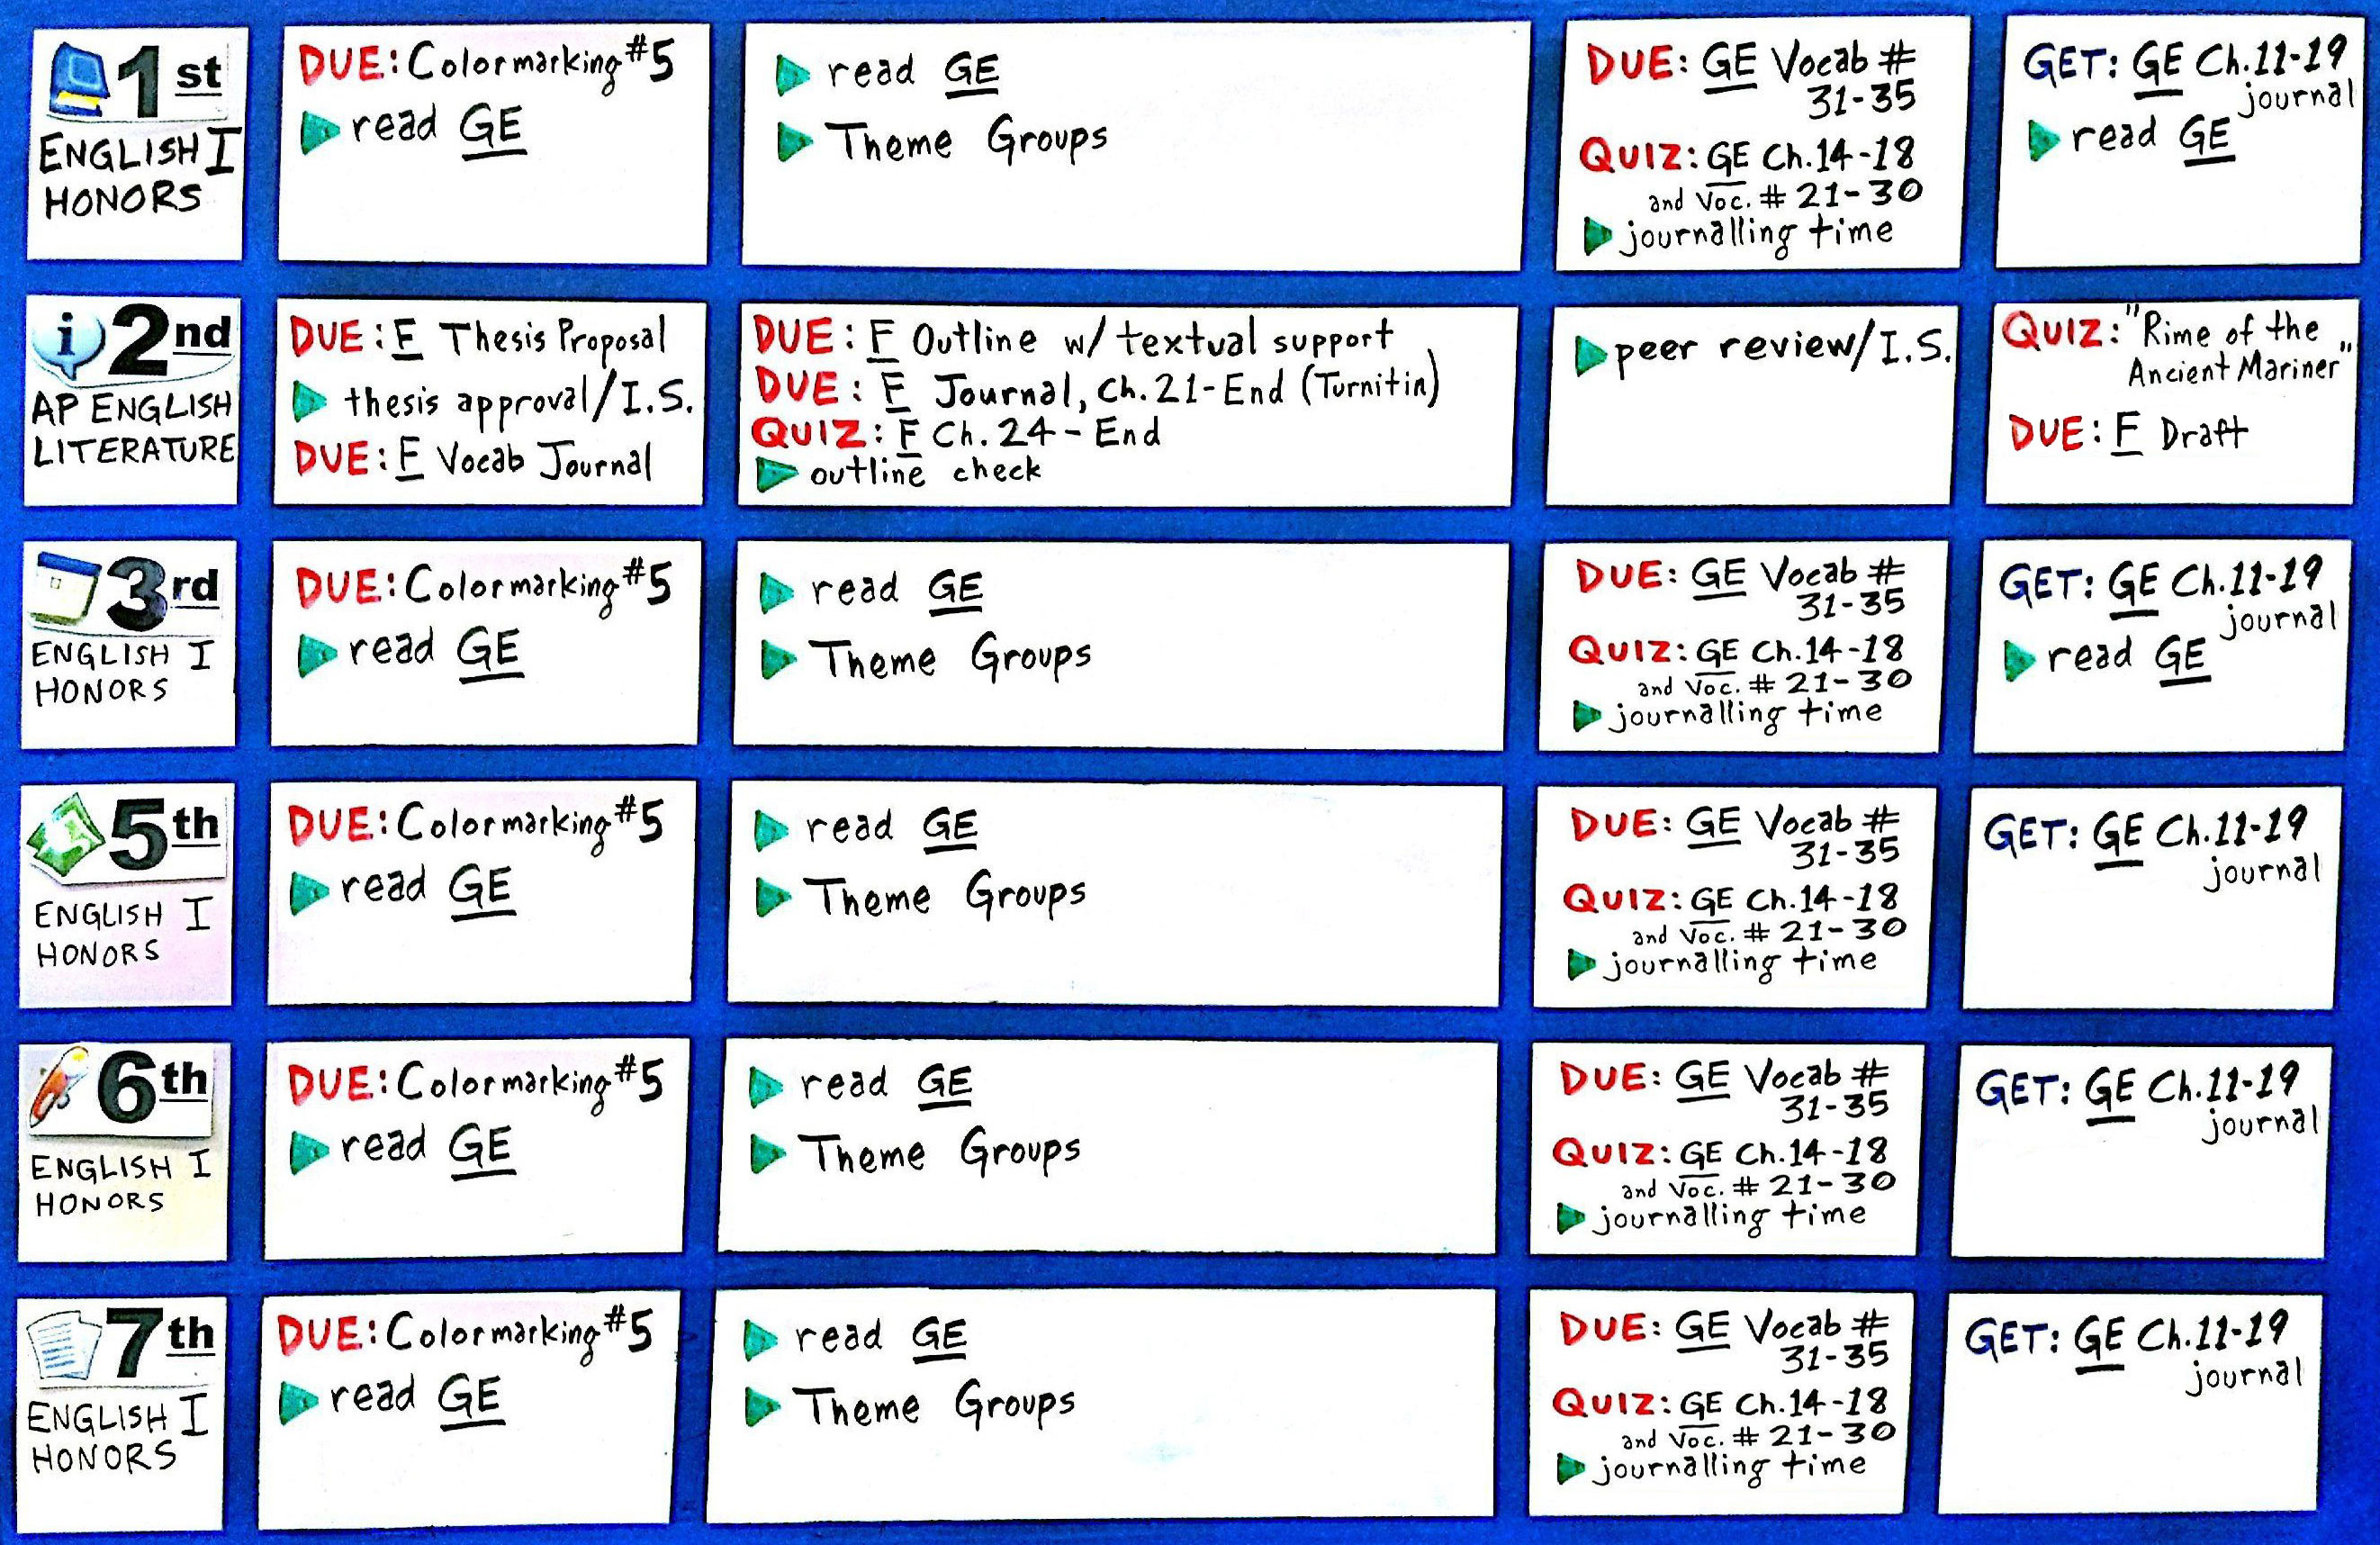 1st
ENGLISH I
HONORS
DUE: Colormarking #5
read GE
read GE
Theme Groups
DUE: GE Vocab #
31-35
QUIZ: GE Ch.14-18
and Voc. # 21-30
journalling time
GET: GE Ch.11-19
journal
read GE
2nd
AP ENGLISH
LITERATURE
DUE: F Thesis Proposal
thesis approval/I.S.
DUE: F Vocab Journal
DUE: F Outline w/ textual support
DUE: F Journal, Ch.21-End (Turnitin)
QUIZ: F Ch.24-End
outline check
peer review/I.S.
QUIZ: "Rime of the
Ancient Mariner"
DUE: F Draft
3rd
ENGLISH I
HONORS
DUE: Colormarking #5
read GE
read GE
Theme Groups
DUE: GE Vocab #
31-35
QUIZ: GE Ch.14-18
and Voc. # 21-30
journalling time
GET: GE Ch.11-19
journal
read GE
5th
ENGLISH I
HONORS
DUE: Colormarking #5
read GE
read GE
Theme Groups
DUE: GE Vocab #
31-35
QUIZ: GE Ch.14-18
and Voc. # 21-30
journalling time
GET: GE Ch.11-19
journal
6th
ENGLISH I
HONORS
DUE: Colormarking #5
read GE
read GE
Theme Groups
DUE: GE Vocab #
31-35
QUIZ: GE Ch.14-18
and Voc. # 21-30
journalling time
GET: GE Ch.11-19
journal
7th
ENGLISH I
HONORS
DUE: Colormarking #5
read GE
read GE
Theme Groups
DUE: GE Vocab #
31-35
QUIZ: GE Ch.14-18
and Voc. # 21-30
journalling time
GET: GE Ch.11-19
journal